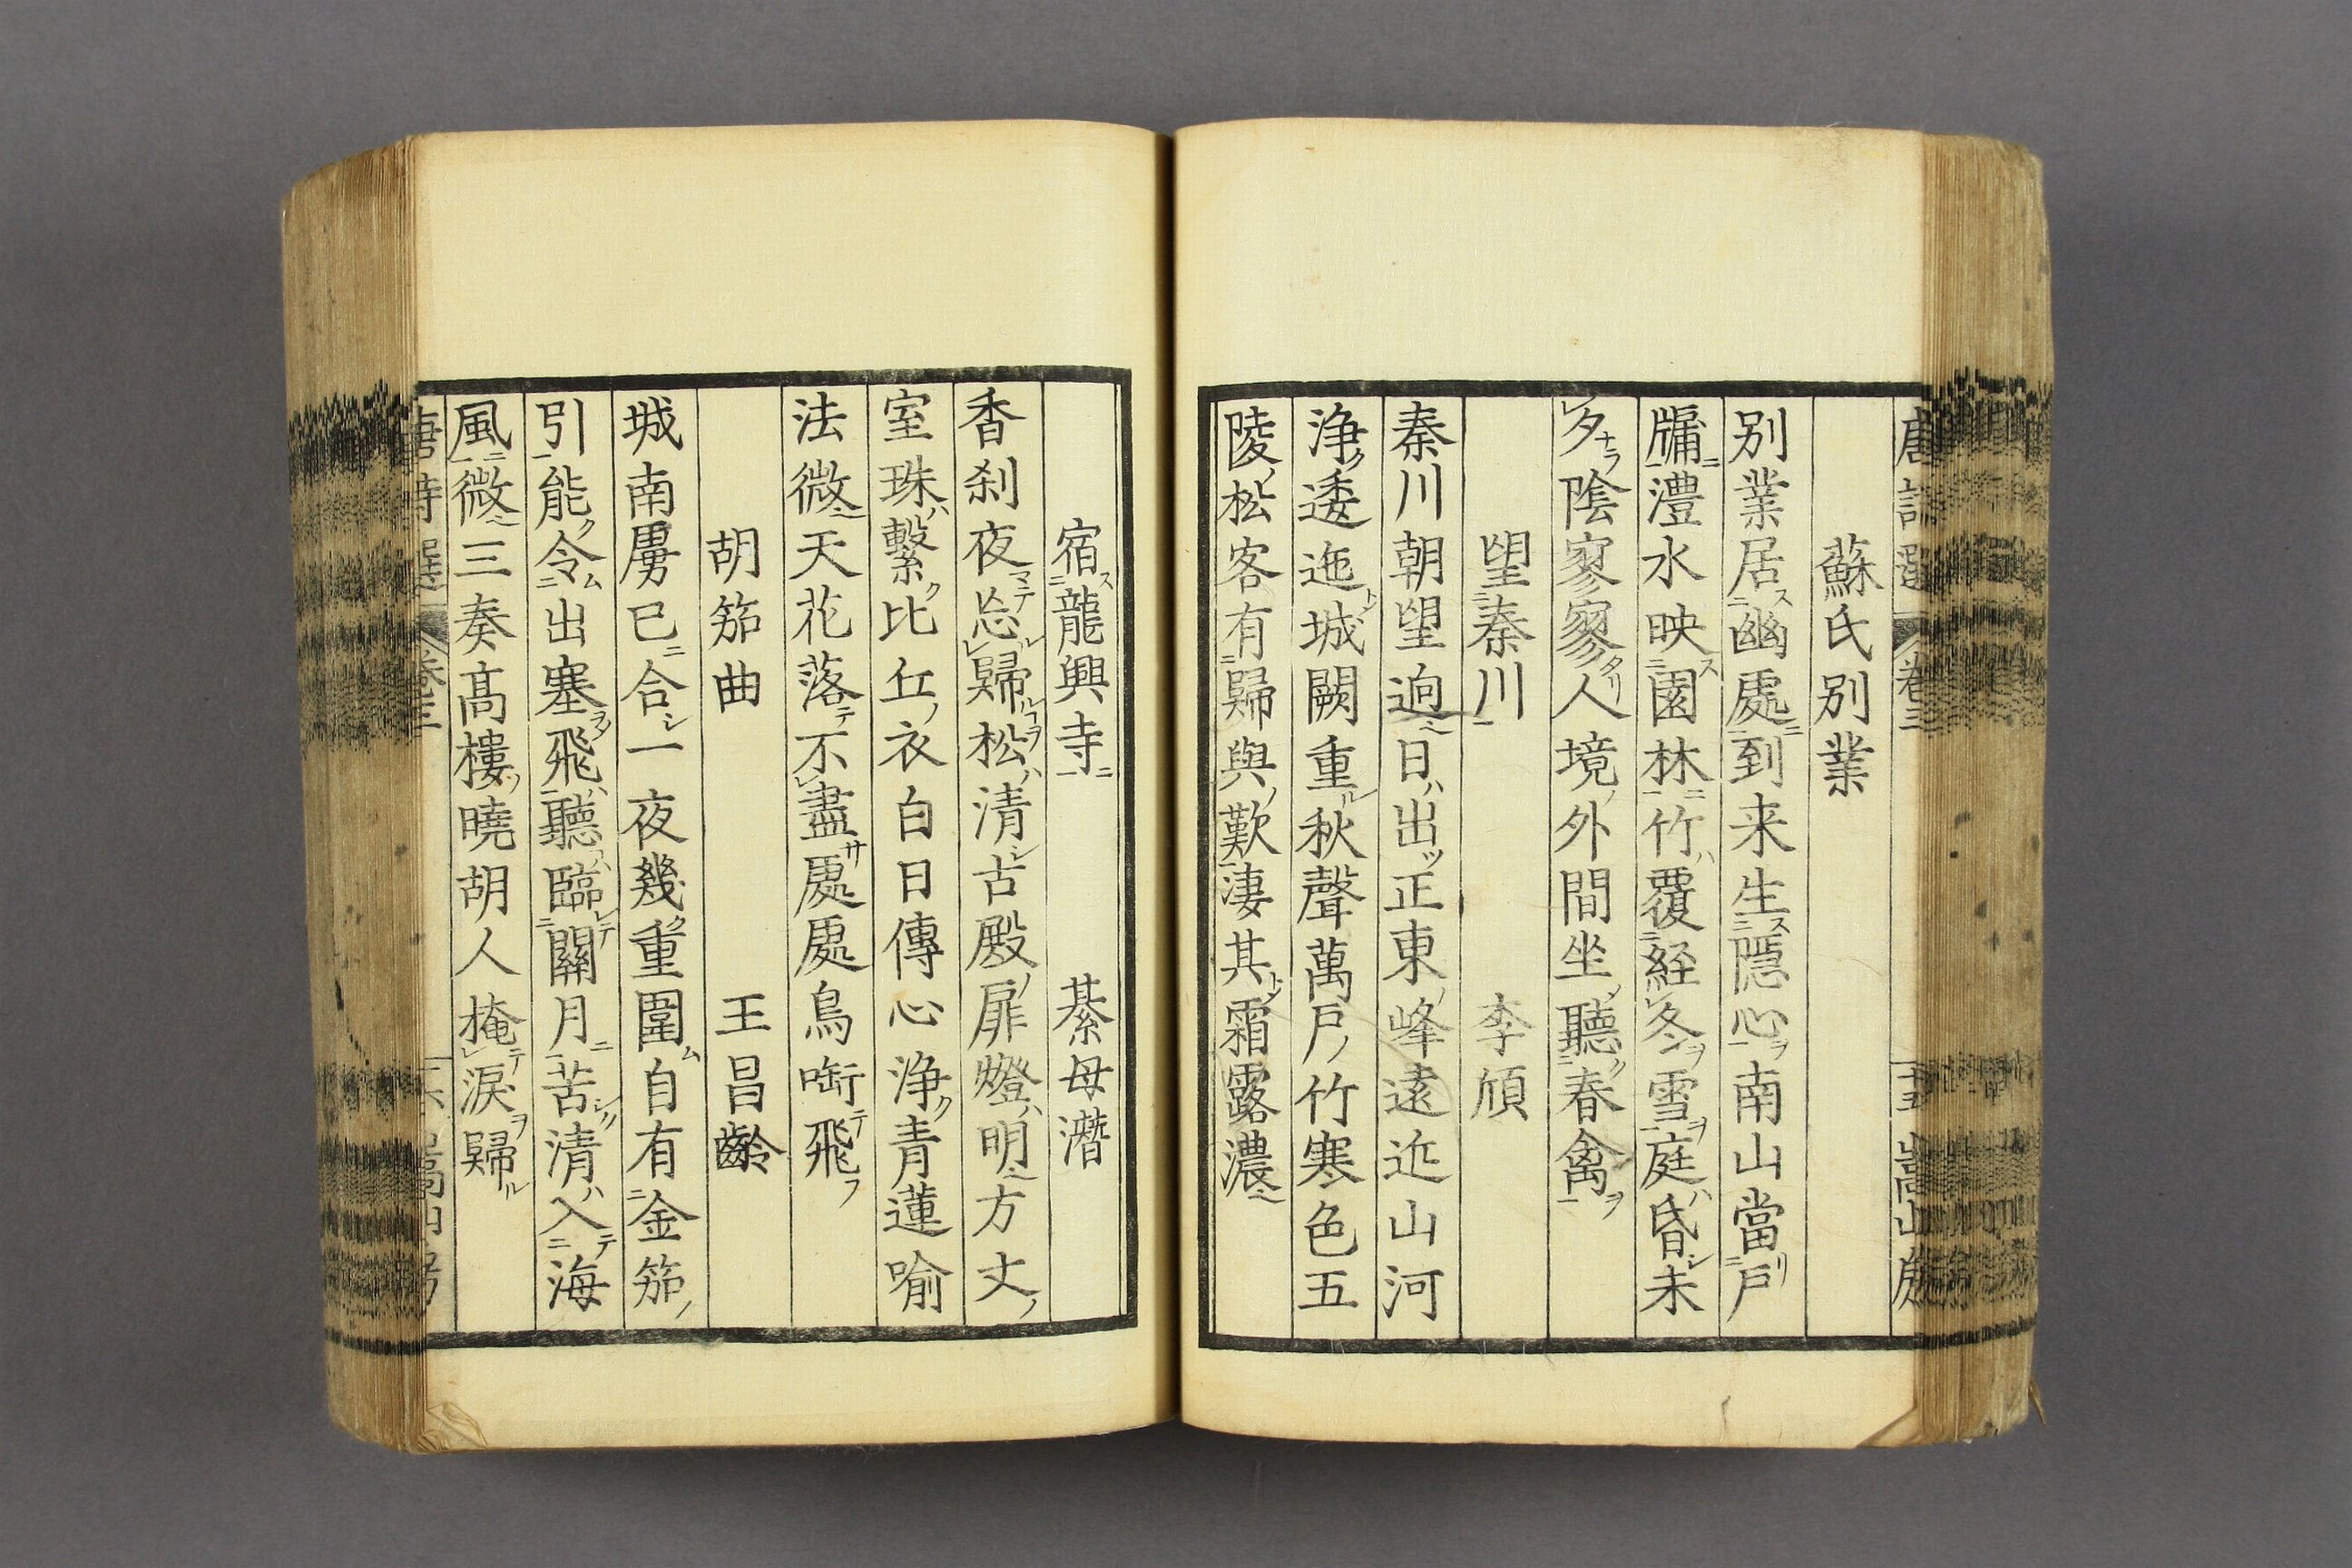 唐詩選 卷三 十五 嵩山房
蘇氏別業
別業居幽處到来生隱心南山當戶
牖灃水映園林竹覆経冬雪庭昏未
夕陰寥寥人境外間坐聽春禽
望秦川 李頎
秦川朝望逈日出正東峰遠近山河
浄逶迤城闕重秋聲萬戶竹寒色五
陵松客有歸與歎淒其霜露濃
宿龍興寺 綦毋潛
香刹夜忘歸松清古殿扉燈明方丈
室珠繫比丘衣白日傳心浄青蓮喻
法微天花落不盡處處鳥啣飛
胡笳曲 王昌齡
城南虜已合一夜幾重圍自有金笳
引能令出塞飛聽臨關月苦清入海
風微三奏髙樓曉胡人掩淚歸
唐詩選 卷三